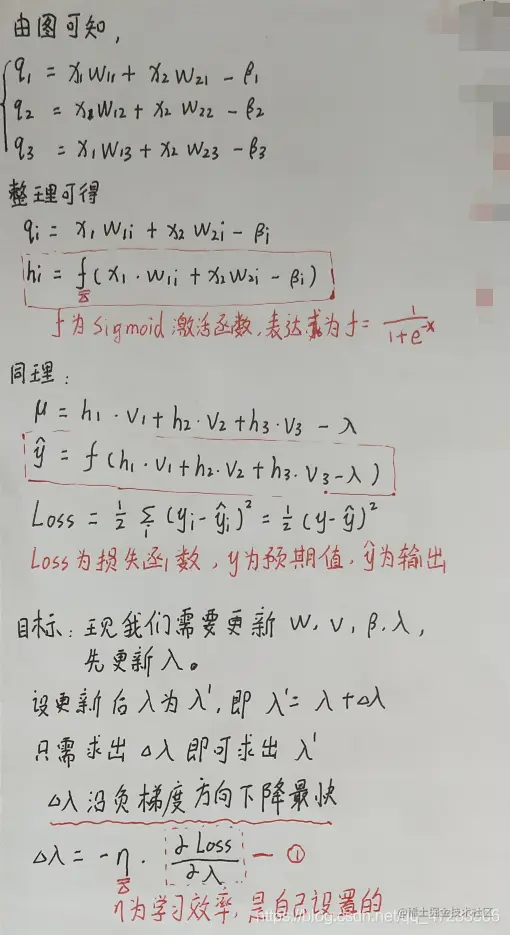 由图可知,
q₁ = x₁W₁₁ + x₂W₂₁ - β₁
q₂ = x₁W₁₂ + x₂ W₂₂ - β₂
q₃ = x₁W₁₃ + x₂ W₂₃ - β₃
整理可得
qᵢ = x₁W₁ᵢ + x₂W₂ᵢ - βᵢ
hᵢ = f(x₁·W₁ᵢ + x₂W₂ᵢ - βᵢ)
f为Sigmoid激活函数,表达式为f = 1/(1+e⁻ˣ)
同理:
μ = h₁·V₁ + h₂·V₂ + h₃·V₃ - λ
ŷ = f(h₁·V₁ + h₂·V₂ + h₃·V₃ - λ)
Loss = ½ Σᵢ (yᵢ - ŷᵢ)² = ½ (y - ŷ)²
Loss为损失函数,y为预期值,ŷ为输出
目标:现我们需要更新 W, V, β, λ,
先更新λ。
设更新后λ为λ',即 λ' = λ + Δλ
只需求出 Δλ 即可求出 λ'
Δλ沿负梯度方向下降最快
Δλ = -η · ∂Loss/∂λ — ①
η为学习效率,是自己设置的
@稀土掘金技术社区